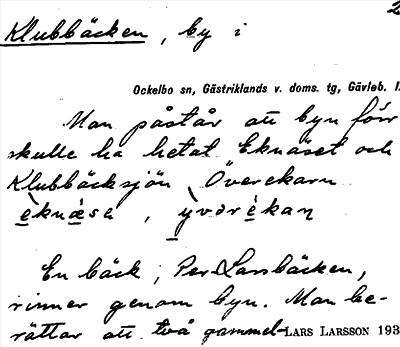 2
Klubbäcken, by i
Ockelbo sn, Gästriklands v. doms. tg, Gävleb. l.
Man påstår att byn förr
skulle ha hetat Eknäset och
Klubbäcksjön Överekarn
èknæsə, ỳvərèkan
En bäck, Per Larsbäcken,
rinner genom byn. Man be-
rättar att två gammel-
LARS LARSSON 193